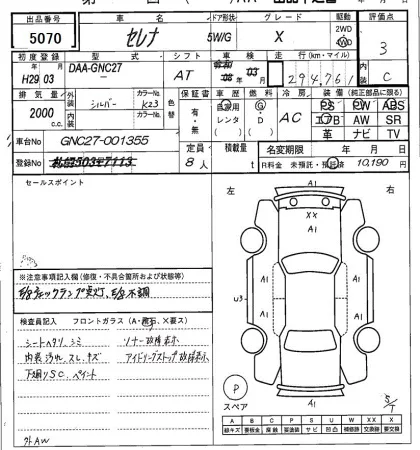 出品番号 車名 ドア形状 グレード 駆動 評価点
5070 セレナ 5W/G X 2WD 4WD 3
初度登録 型式 シフト 車検 走行(km・マイル)
H29 03 DAA-GNC27 - AT 08 03 294,761 C
排気量 外装 カラーNo. 色替 保証書 車歴 燃料 冷房 装備(純正部品に限る)
2000 c.c. シルバー K23 有・無 自家用 レンタ G AC PS PW ABS
内装 カラーNo. エアB AW SR
革 ナビ TV
車台No GNC27-001355 定員 積載量 名変期限 年 月 日
登録No 8人 t R料金 未預託・預託済 10,190 円
セールスポイント
左 右
A1
XX
A1
A1 A1
U3
A1 A1
A1
※注意事項記入欄(修復・不具合箇所および状態等)
E/gチェックランプ点灯、E/g不調
検査員記入 フロントガラス(A・飛石、X要ス)
シートヘタリ、シミ ソナー故障表示
内装汚れ、スレ、キズ アイドリングストップ故障表示
下廻りSC、ペイント
外AW
P
スペア
S/T
A B C P S U W X XX
線キズ 要板金 腐蝕 要塗装 サビ 凹凸 補修跡 要交換 交換跡